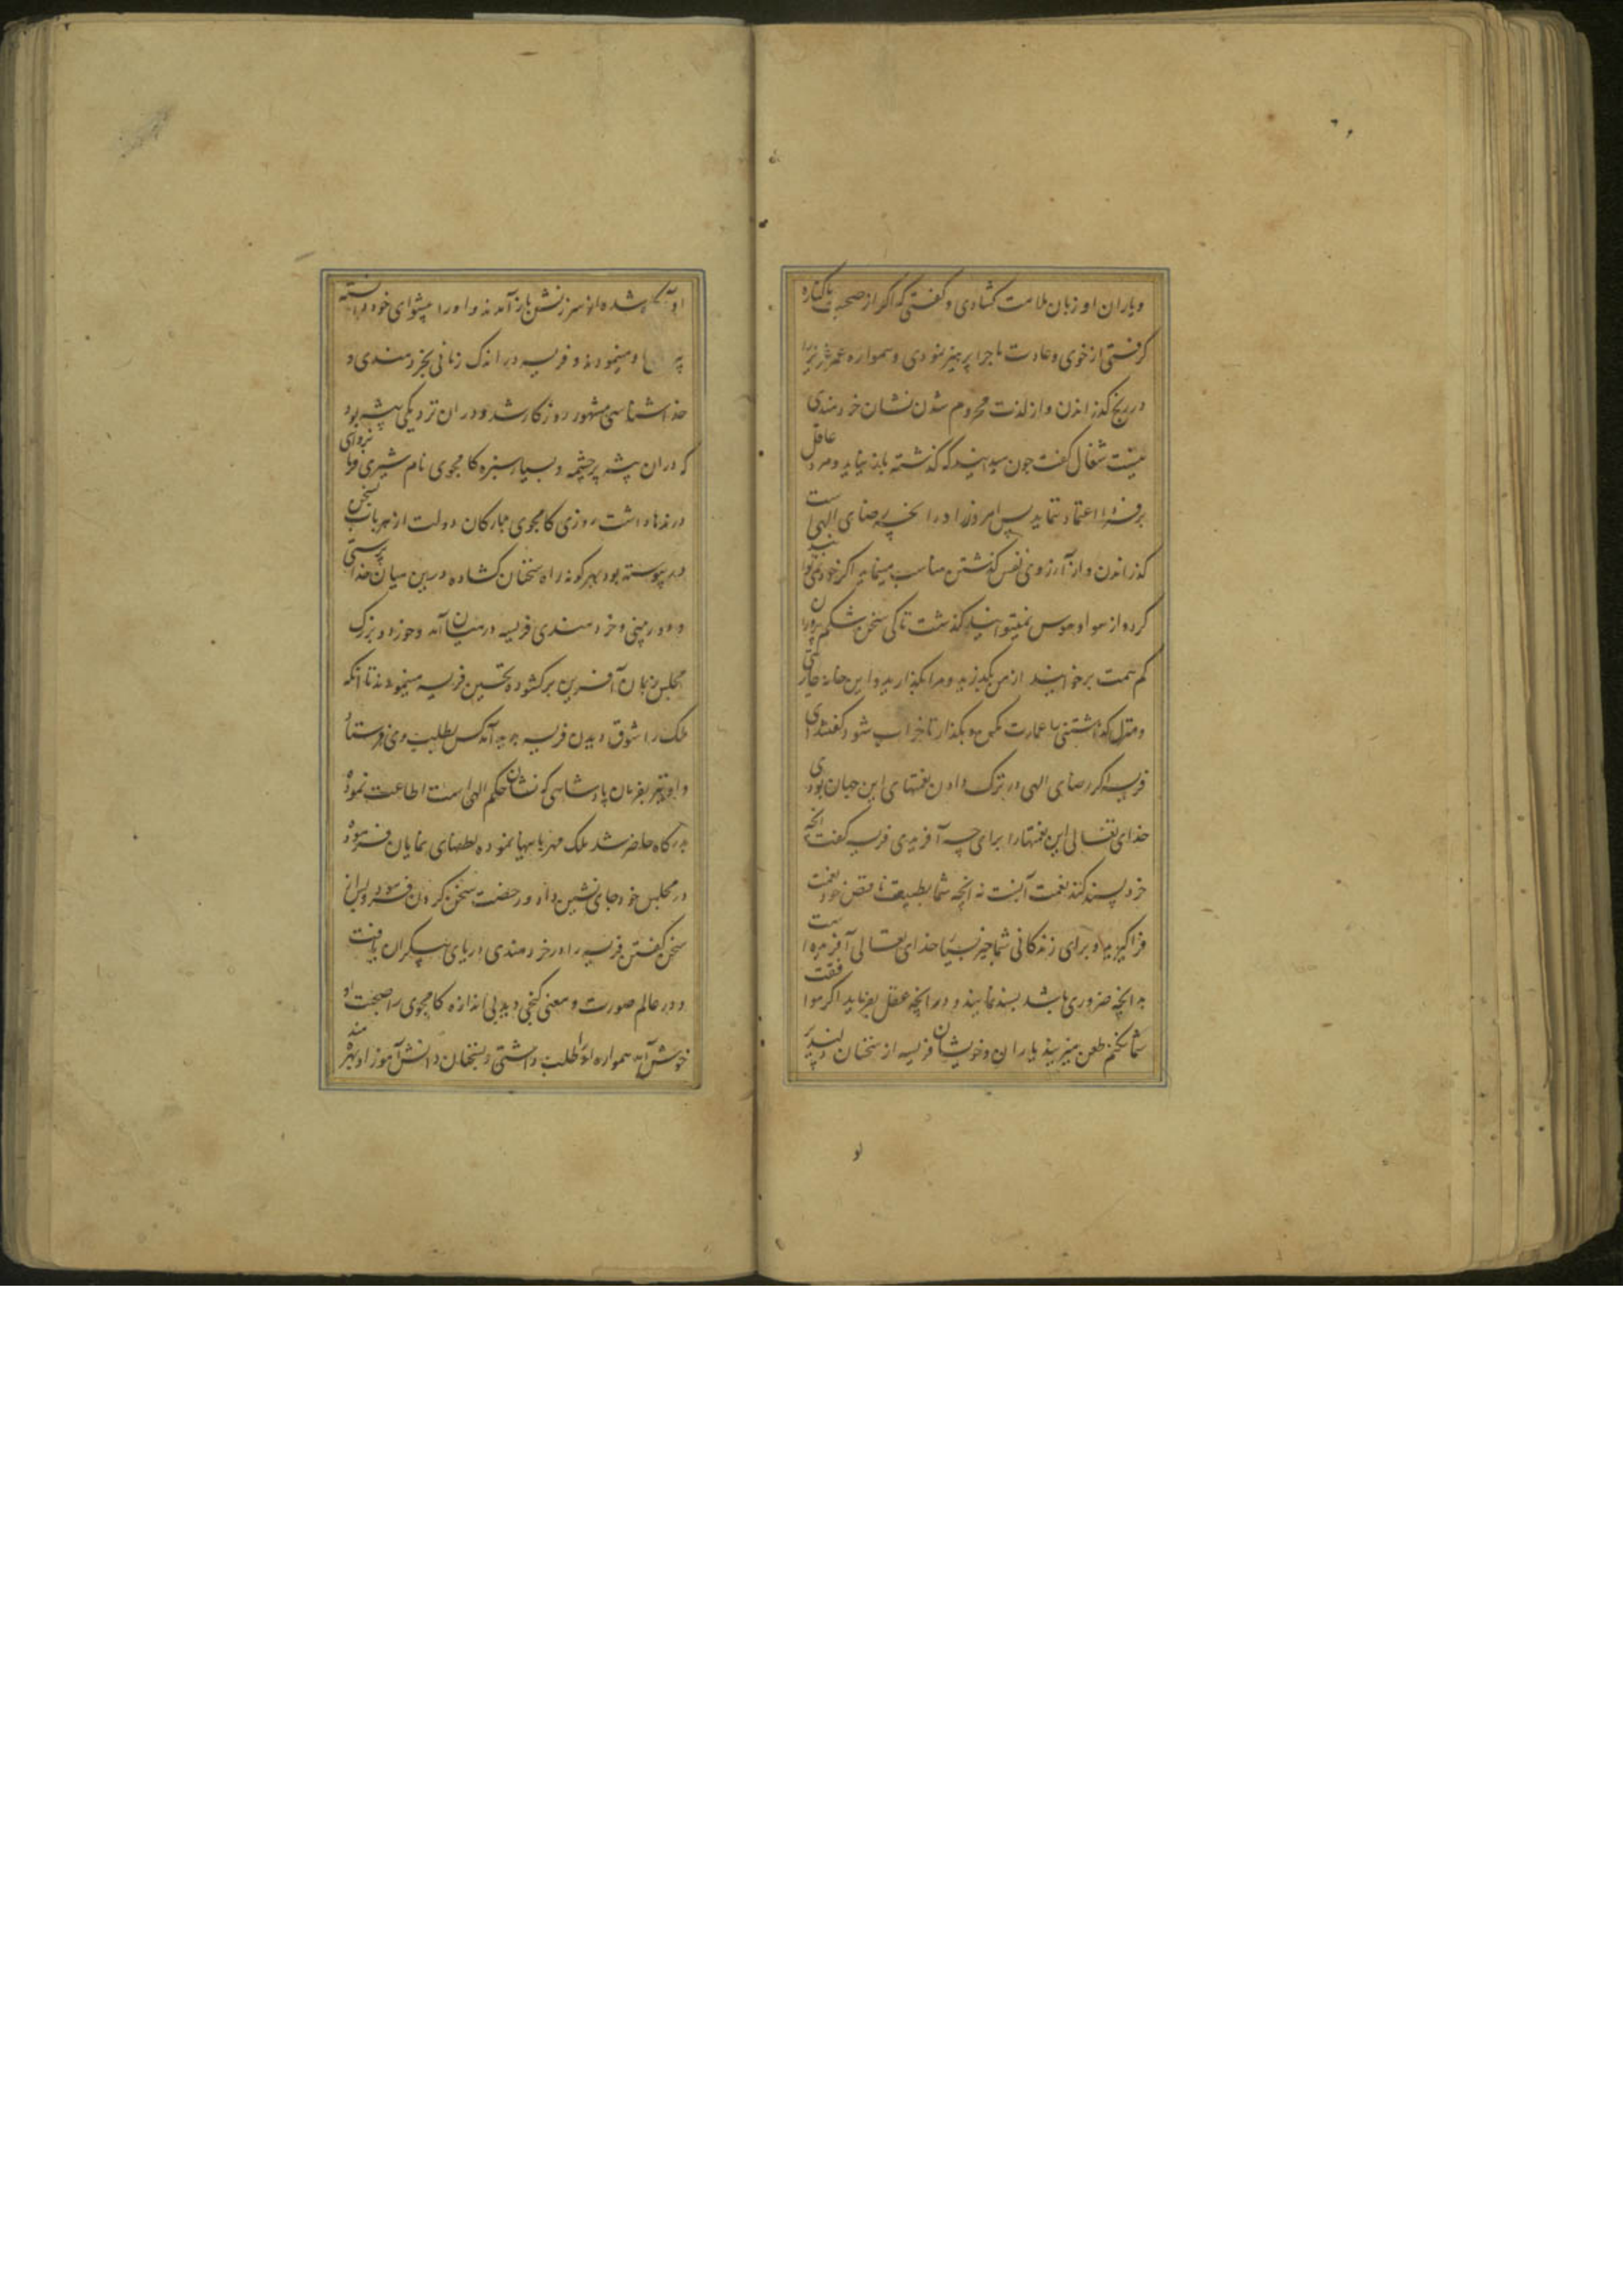 و یاران او زبان ملامت کشادی و کفتی که اکر از صحبت ما کناره
کرفتی از خوی و عادت ما چرا پرهیز نمودی و همواره عمر عزیز را
در رنج کذراندن و از لذت محروم شدن نشان خردمندی
نیست شغال کفت چون میدانید که کذشته باز نیاید و مرد عاقل
بر فردا اعتماد ننماید پس امروز را در انچه رضای الهی است
کذراندن و از آرزوی نفس کذشتن مناسب مینماید اکر خود
کرده از هوا و هوس نمیتوانید کذشت تا کی سخن شکم پروران
کم همت برخوانید از من بکذرید و مرا بکذارید و این خانه
و منزل کذاشتنی را عمارت مکن و بکذار تا خراب شود کفتند ای
فریسه اکر رضای الهی در ترک دادن نعمتهای این جهان بودی
خدای تعالی این نعمتها را برای چه آفریدی فریسه کفت انچه
خرد پسند کند نعمت آنست نه انچه شما بطبیعت ناقص خود نعمت
فرا کیرید و برای زندکانی شما چیز بسیار خدای تعالی آفریده است
به انچه ضروری باشد بسند نمایید و در انچه عقل بفرماید اکر موافقت
شما نکنم طعن مزنید یاران و خویشان فریسه از سخنان دلپذیر
او
او شده از سرزنش باز آمدند و او را پیشوای خود دانسته
او مینمودند و فریسه در اندک زمانی بخردمندی و
خداشناسی مشهور روزکار شد و در ان نزدیکی بیشه بود
که در ان بیشه پرچشمه و بسیار سبزه کامجوی نام شیری فرمانروای
درندها داشت روزی کامجوی با ارکان دولت از هر باب سخن
در پیوسته بود بهرکونه راه سخنان کشاده در این میان خدا پرستی
و دوربینی و خردمندی فریسه در میان آمد و خورد و بزرک
مجلس زبان آفرین برکشوده تحسین فریسه مینمودند تا انکه
ملک را شوق دیدن فریسه پدید آمد کس بطلب وی فرستاد
و او نیز بفرمان پادشاهی که نشان حکم الهی است اطاعت نموده
بدرکاه حاضر شد ملک مهربانیها نموده لطفهای نمایان فرموده
در مجلس خود جای نشین داد و رخصت سخن کردن فرمود و پس از
سخن کفتن فریسه را در خردمندی دریای بیکران یافت
و در عالم صورت و معنی کنجی دید بی اندازه کامجوی را صحبت او
خوش آمد همواره او را طلب داشتی و بسخنان دانش آموز او بهره مند